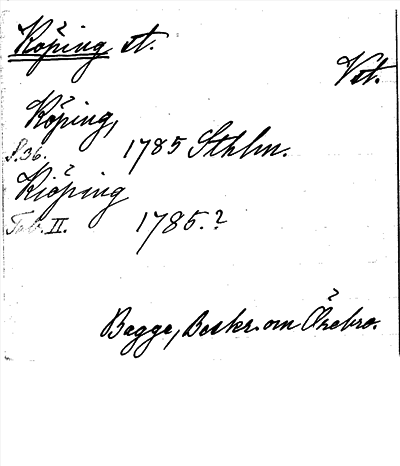 Köping st.
Vst.
Köping,
S. 36. 1785 Sthlm.
Kiöping
Tab. II. 1785.?
Bagge, Beskr. om Örebro.